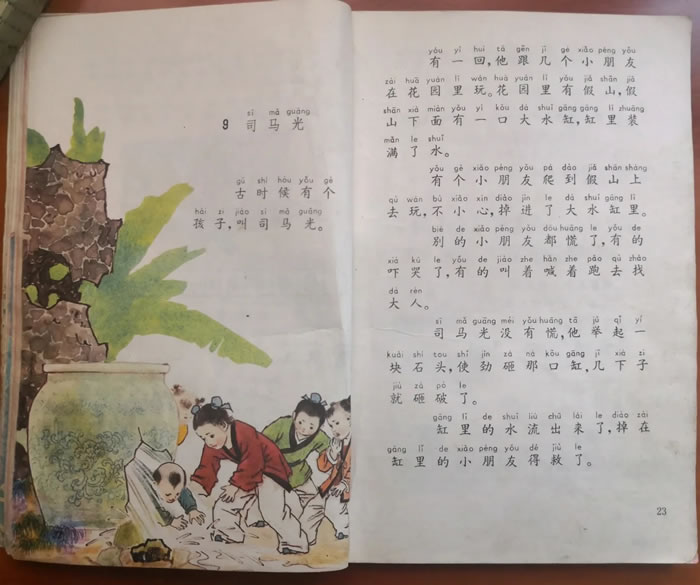 sī mǎ guāng
9 司马光
gǔ shí hòu yǒu gè
古时候有个
hái zi jiào sī mǎ guāng
孩子,叫司马光。
yǒu yì huí tā gēn jǐ gè xiǎo péng yǒu
有一回,他跟几个小朋友
zài huā yuán lǐ wán huā yuán lǐ yǒu jiǎ shān jiǎ
在花园里玩。花园里有假山,假
shān xià miàn yǒu yì kǒu dà shuǐ gāng gāng lǐ zhuāng
山下面有一口大水缸,缸里装
mǎn le shuǐ
满了水。
yǒu gè xiǎo péng yǒu pá dào jiǎ shān shàng
有个小朋友爬到假山上
qù wán bù xiǎo xīn diào jìn le dà shuǐ gāng lǐ
去玩,不小心,掉进了大水缸里。
bié de xiǎo péng yǒu dōu huāng le yǒu de
别的小朋友都慌了,有的
xià kū le yǒu de jiào zhe hǎn zhe pǎo qù zhǎo
吓哭了,有的叫着喊着跑去找
dà rén
大人。
sī mǎ guāng méi yǒu huāng tā jǔ qǐ yí
司马光没有慌,他举起一
kuài shí tou shǐ jìn zá nà kǒu gāng jǐ xià zi
块石头,使劲砸那口缸,几下子
jiù zá pò le
就砸破了。
gāng lǐ de shuǐ liú chū lái le diào zài
缸里的水流出来了,掉在
gāng lǐ de xiǎo péng yǒu dé jiù le
缸里的小朋友得救了。
23